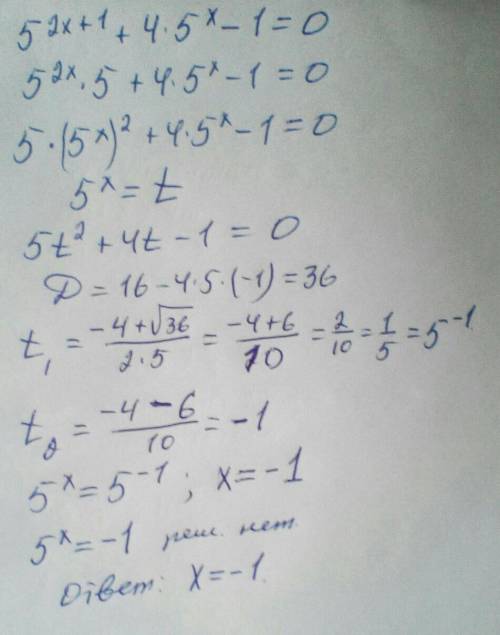 5^{2x+1} + 4·5^x − 1 = 0
5^{2x}·5 + 4·5^x − 1 = 0
5·(5^x)^2 + 4·5^x − 1 = 0
5^x = t
5t^2 + 4t − 1 = 0
D = 16 − 4·5·(−1) = 36
t_1 = \frac{−4+√36}{2·5} = \frac{−4+6}{10} = \frac{2}{10} = \frac{1}{5} = 5^{−1}
t_2 = \frac{−4−6}{10} = −1
5^x = 5^{−1} ; x = −1
5^x = −1 реш. нет.
Ответ: x = −1.